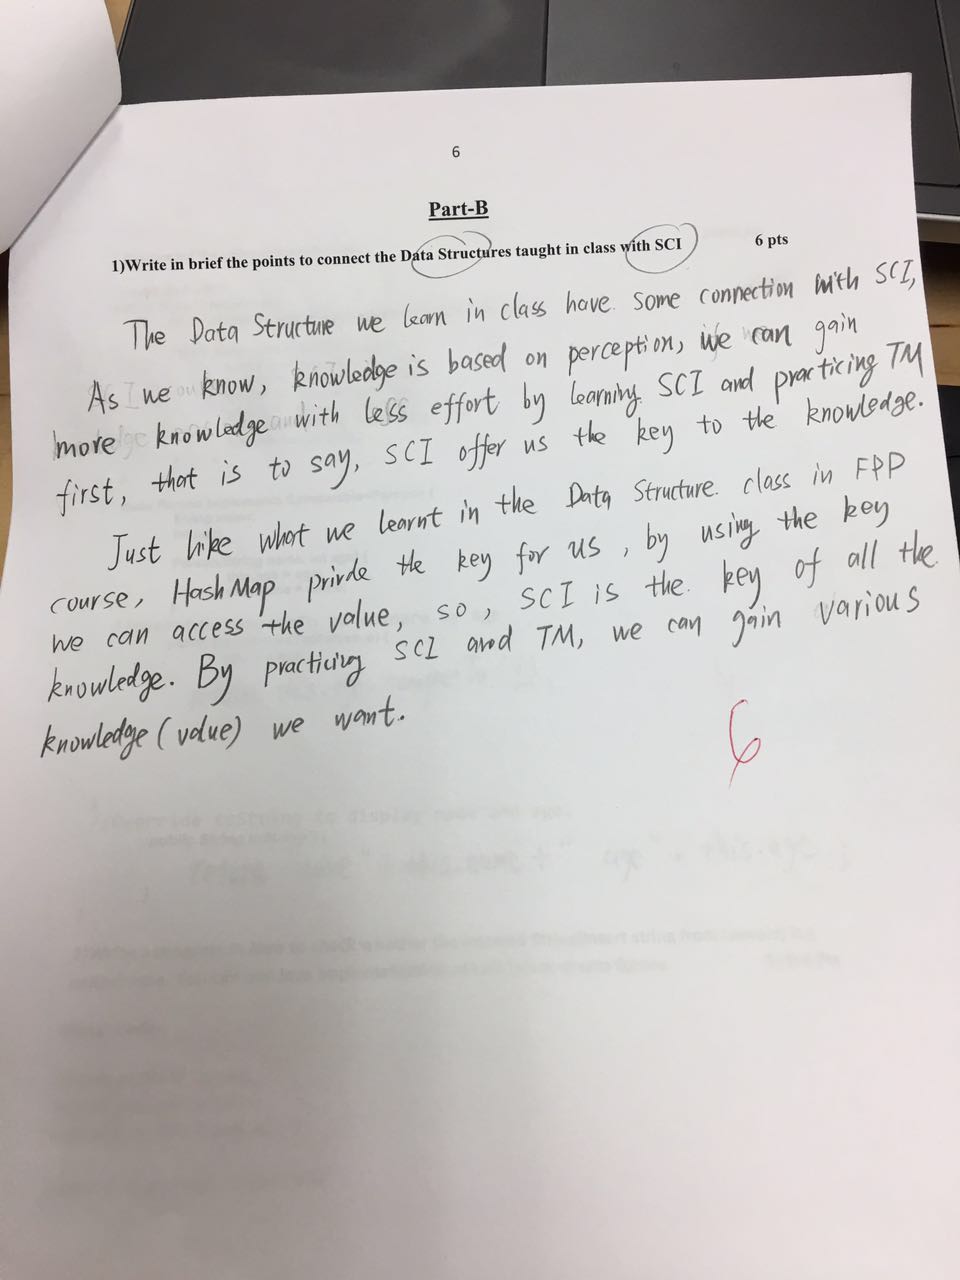 6
Part-B
1)Write in brief the points to connect the Data Structures taught in class with SCI 6 pts
The Data Structure we learn in class have some connection with SCI,
As we know, knowledge is based on perception, we can gain
more knowledge with less effort by learning SCI and practicing TM
first, that is to say, SCI offer us the key to the knowledge.
Just like what we learnt in the Data Structure class in FPP
course, HashMap privde the key for us, by using the key
we can access the value, so, SCI is the key of all the
knowledge. By practicing SCI and TM, we can gain various
knowledge (value) we want.
6